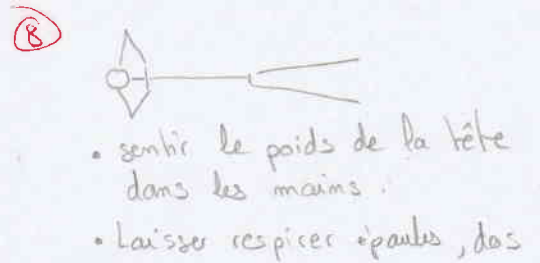 8
• sentir le poids de la tête
dans les mains.
• Laisser respirer épaules, dos